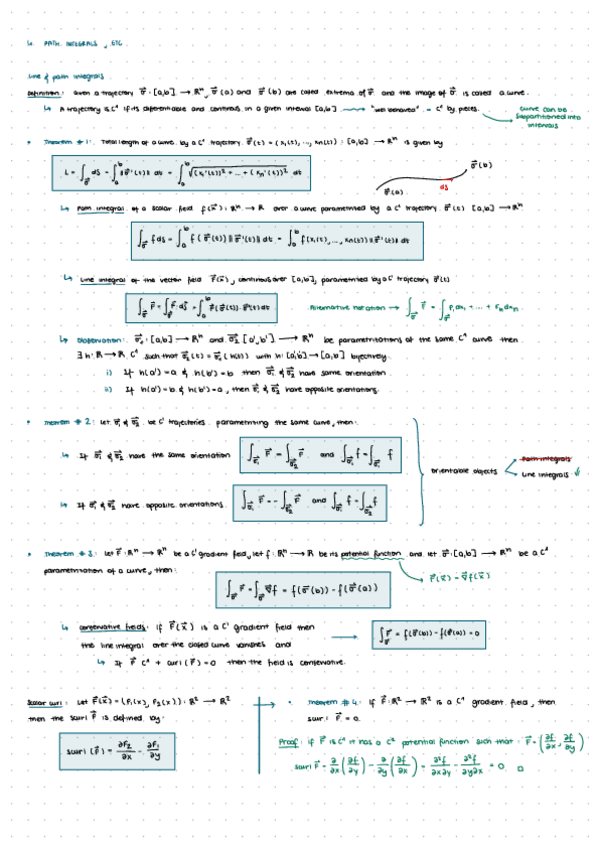 4. PATH INTEGRALS, ETC
Line & path integrals
Definition: Given a trajectory σ⃗: [a,b] → ℝⁿ, σ⃗(a) and σ⃗(b) are called extrema of σ⃗ and the image of σ⃗ is called a curve.
↳ A trajectory is C¹ if its differentiable and continous in a given interval [a,b] ⟿ "well behaved" = C¹ by pieces.
curve can be repartitioned into intervals
• Theorem #1: Total length of a curve by a C¹ trajectory σ⃗(t) = (x₁(t), ..., xₙ(t)) : [a,b] → ℝⁿ is given by
L = ∫_σ⃗ ds = ∫_a^b ‖σ⃗'(t)‖ dt = ∫_a^b √((x₁'(t))² + ... + (xₙ'(t))²) dt
σ⃗(a) ds σ⃗(b)
↳ Path integral of a scalar field f(x⃗): ℝⁿ → ℝ over a curve parametrited by a C¹ trajectory σ⃗(t) [a,b] → ℝⁿ
∫_σ⃗ f ds = ∫_a^b f(σ⃗(t)) ‖σ⃗'(t)‖ dt = ∫_a^b f(x₁(t), ..., xₙ(t)) ‖σ⃗'(t)‖ dt
↳ Line integral of the vector field F⃗(x), continous over [a,b], parametrited by a C¹ trajectory σ⃗(t)
∫_σ⃗ F⃗ = ∫_σ⃗ F⃗·ds⃗ = ∫_a^b F⃗(σ⃗(t))·σ⃗'(t) dt
Alternative notation → ∫_σ⃗ F⃗ = ∫_σ⃗ F₁dx₁ + ... + Fₙdxₙ
↳ Observation: σ⃗₁: [a,b] → ℝⁿ and σ⃗₂ [a',b'] → ℝⁿ be parametritations of the same C¹ curve then
∃ h: ℝ → ℝ C¹ such that σ⃗₂(t) = σ⃗₁(h(t)) with h: [a',b'] → [a,b] bijectively.
i) If h(a') = a & h(b') = b then σ⃗₁ & σ⃗₂ have same orientation.
ii) If h(a') = b & h(b') = a, then σ⃗₁ & σ⃗₂ have opposite orientations.
• Theorem #2: Let σ⃗₁ & σ⃗₂ be C¹ trajectories parametriting the same curve, then:
↳ If σ⃗₁ & σ⃗₂ have the same orientation
∫_σ⃗₁ F⃗ = ∫_σ⃗₂ F⃗ and ∫_σ⃗₁ f = ∫_σ⃗₂ f
orientable objects
Path integrals
Line integrals ✓
↳ If σ⃗₁ & σ⃗₂ have opposite orientations
∫_σ⃗₁ F⃗ = -∫_σ⃗₂ F⃗ and ∫_σ⃗₁ f = ∫_σ⃗₂ f
• Theorem #3: Let F⃗: ℝⁿ → ℝⁿ be a C¹ gradient field, let f: ℝⁿ → ℝ be its potential function and let σ⃗: [a,b] → ℝⁿ be a C¹
parametritation of a curve, then:
F⃗(x⃗) = ∇⃗f(x⃗)
∫_σ⃗ F⃗ = ∫_σ⃗ ∇⃗f = f(σ⃗(b)) - f(σ⃗(a))
↳ Conservative fields: if F⃗(x⃗) is a C¹ gradient field then
the line integral over the closed curve vanishes and
→ ∫_σ⃗ F⃗ = f(σ⃗(b)) - f(σ⃗(a)) = 0
↳ If F⃗ C¹ + curl(F⃗) = 0 then the field is conservative.
Scalar curl: Let F⃗(x⃗) = (F₁(x), F₂(x)): ℝ² → ℝ²
then the scurl F⃗ is defined by:
scurl(F⃗) = ∂F₂/∂x - ∂F₁/∂y
• Theorem #4: if F⃗: ℝ² → ℝ² is a C¹ gradient field, then
scurl F⃗ = 0.
Proof: if F⃗ is C¹ it has a C² potential function such that: F⃗ = (∂f/∂x, ∂f/∂y)
scurl F⃗ = ∂/∂x(∂f/∂y) - ∂/∂y(∂f/∂x) = ∂²f/∂x∂y - ∂²f/∂y∂x = 0 □